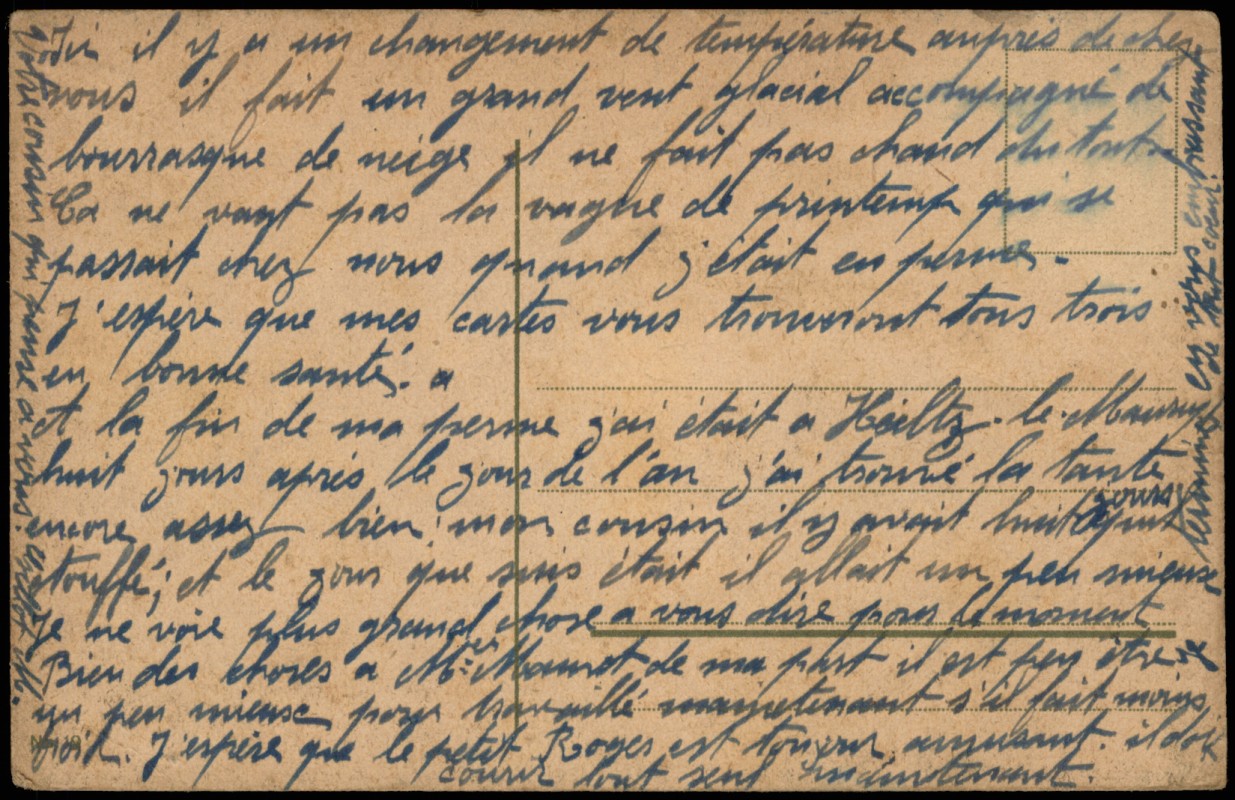 Ici il y a un changement de température auprès de chez
vous il fait un grand vent glacial accompagné de
bourrasque de neige il ne fait pas chaud du tout.
Ca ne vaut pas la vague de printemp qui se
passait chez nous quand j'était en perme.
J'espère que mes cartes vous trouveront tous trois
en bonne santé. a
et la fin de ma perme j'ai était a Heiltz-le-Maurupt
huit jours après le jour de l'an j'ai trouvé la tante
encore assez bien; mon cousin il y avait huit jours
étouffé; et le jour que suis était il allait un peu mieux
Je ne voie plus grand chose a vous dire pour le moment
Bien des choses a Mr Mauret de ma part il est peu être
un peu mieux pour travaillé maintenant s'il fait moins
froid. J'espère que le petit Roger est toujour amusant. il doit
courir tout seul maintenant.
je termine
en vous embrassant
de tout coeur.
Votre cousin qui pense a vous.